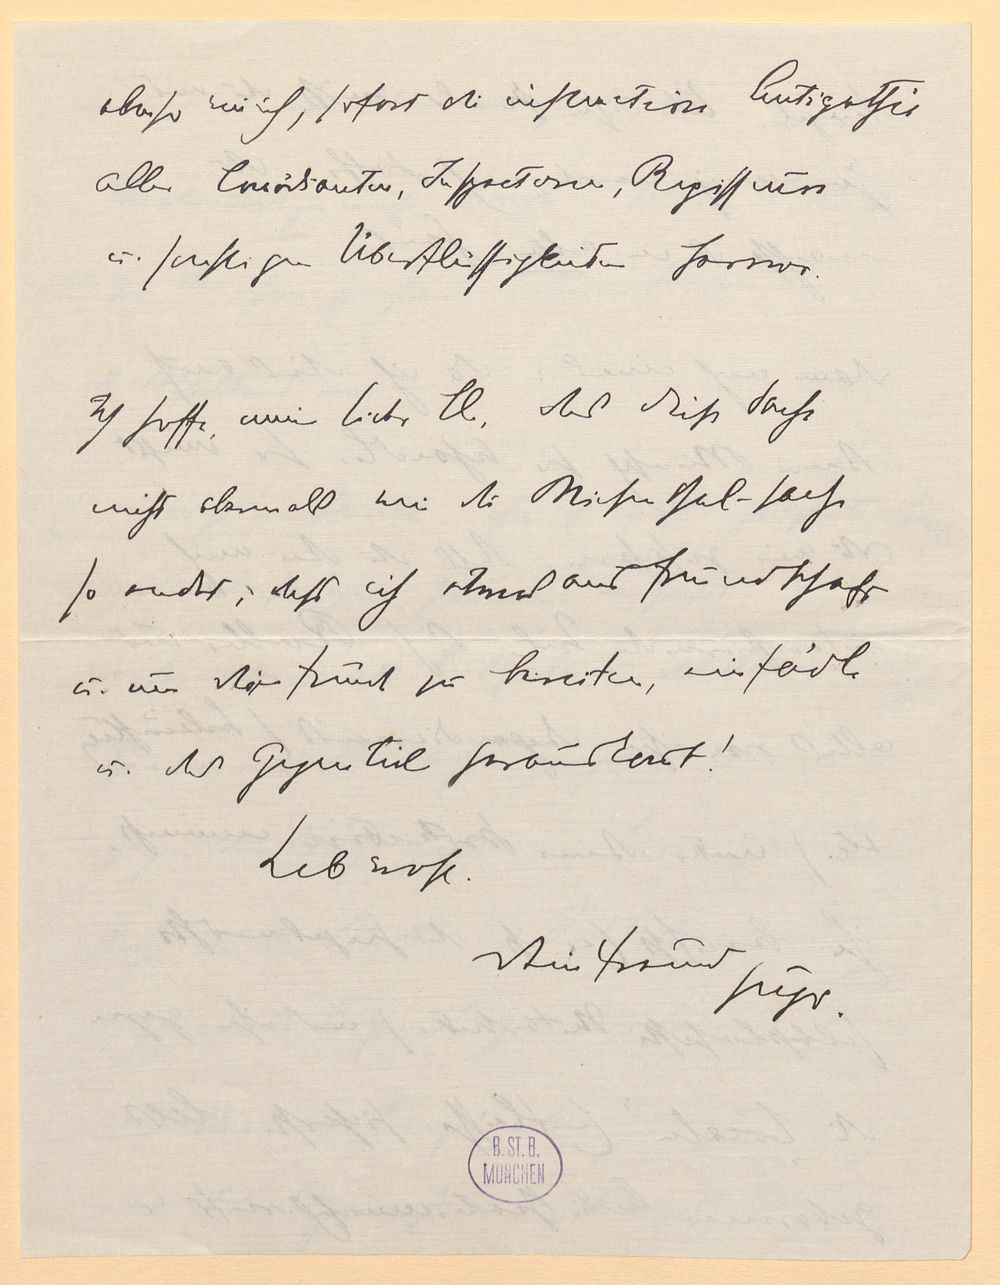 sofort die instructive Antipathie
aller Comödianten, Inspectoren, Regisseure
u. sonstigen Überflüssigkeiten hervor.
Ich hoffe, mein lieber Cl., das diese Sache
nicht abermals wie die Sache
so endet, dass ich etwas aus Freundschaft
u. um dir Freude zu bereiten, einfädle
u. das Gegenteil herauskommt!
Leb wohl.
Dein Freund Hugo.
B. ST. B.
MÜNCHEN